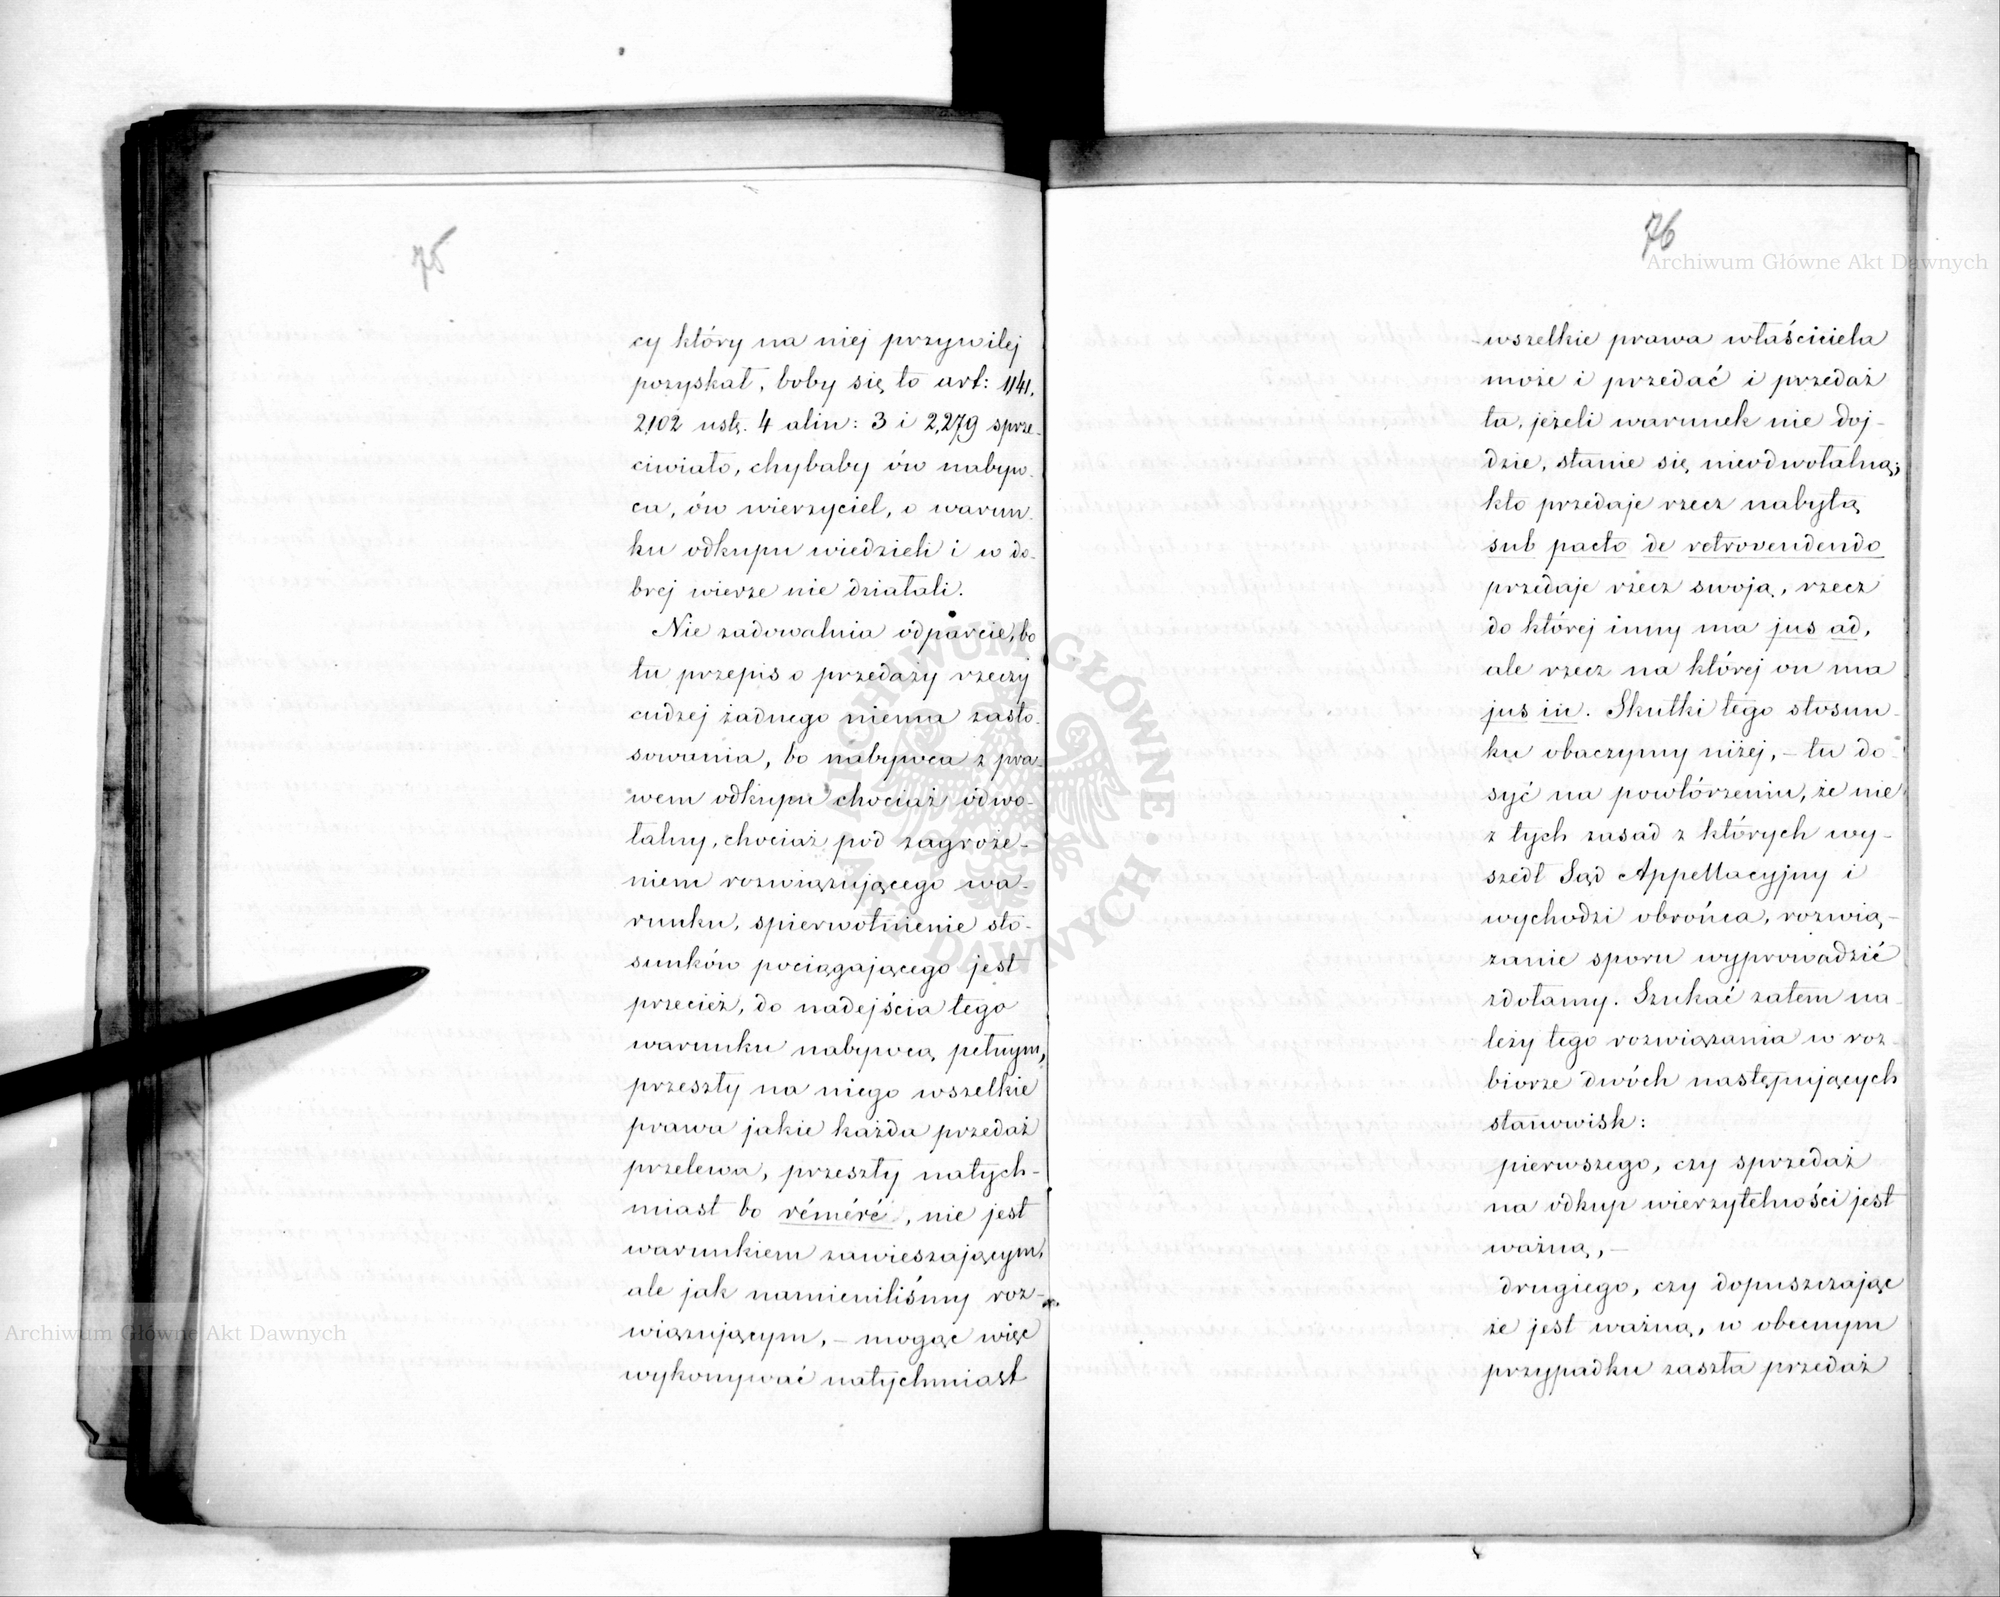 75
cy który na niej przywilej
pozyskał, boby się to art: 1141,
2102 ustę. 4 alin: 3 i 2,279 sprze-
ciwiało, chybaby ów nabyw-
ca, ów wierzyciel, o warun-
ku odkupu wiedzieli i w do-
brej wierze nie działali.
Nie zadowalnia odparcie, bo
tu przepis o przedaży rzeczy
cudzej żadnego niema zasto-
sowania, bo nabywca z pra-
wem odkupu chociaż odwo-
łalny, chociaż pod zagroże-
niem rozwiązującego wa-
runku, spierwotnienie sto-
sunków pociągającego jest
przecież, do nadejścia tego
warunku nabywcą pełnym,
przeszły na niego wszelkie
prawa jakie każda przedaż
przelewa, przeszły natych-
miast bo réméré, nie jest
warunkiem zawieszającym,
ale jak namieniliśmy roz-
wiązującym, – mogąc więc
wykonywać natychmiast
76
wszelkie prawa właściciela
może i przedać i przedaż
ta, jeżeli warunek nie doj-
dzie, stanie się nieodwołalną;
kto przedaje rzecz nabytą
sub pacto de retrovendendo
przedaje rzecz swoją, rzecz
do której inny ma jus ad,
ale rzecz na której on ma
jus in. Skutki tego stosun-
ku obaczymy niżej, – tu do-
syć na powtórzeniu, że nie
z tych zasad z których wy-
szedł Sąd Appellacyjny i
wychodzi obrońca, rozwią-
zanie sporu wyprowadzić
zdołamy. Szukać zatem na-
leży tego rozwiązania w roz-
biorze dwóch następujących
stanowisk:
pierwszego, czy sprzedaż
na odkup wierzytelności jest
ważną, –
drugiego, czy dopuszczając
że jest ważną, w obecnym
przypadku zaszła przedaż
Archiwum Główne Akt Dawnych
Archiwum Główne Akt Dawnych
ARCHIWUM GŁÓWNE AKT DAWNYCH